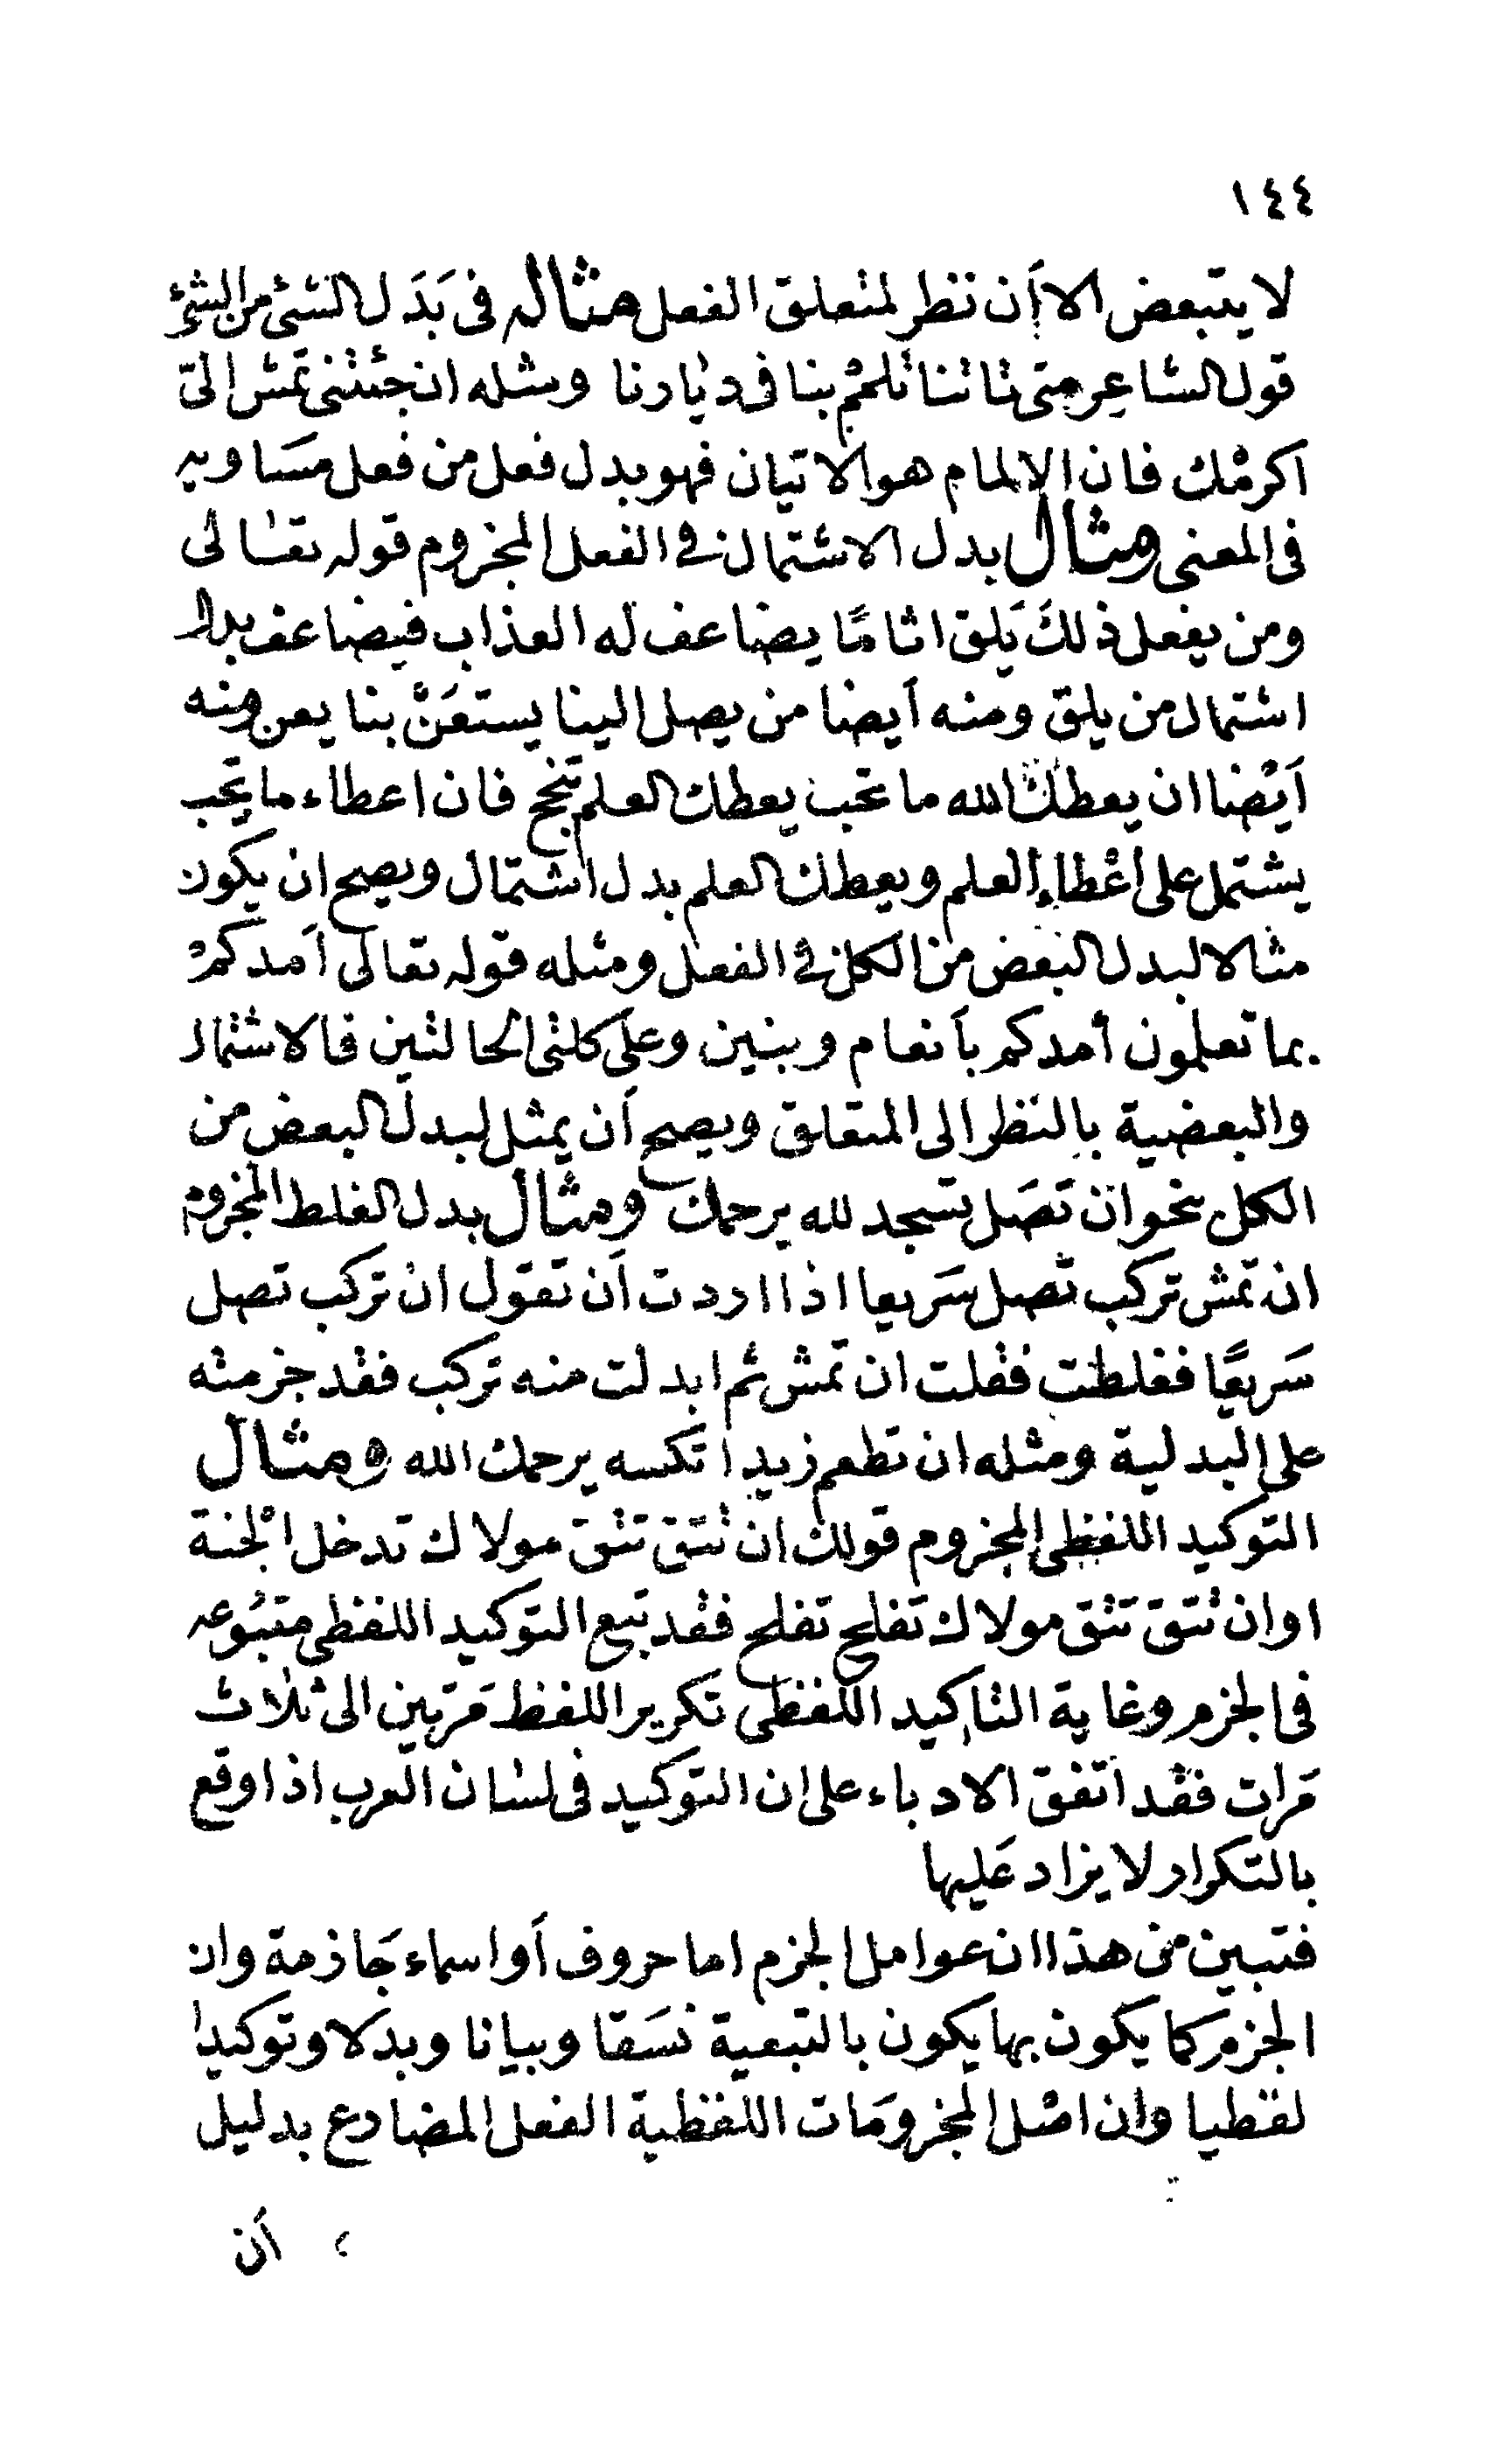 ١٤٤
لا يتبعض الا أن تنظر لمتعلق الفعل مثاله فى بَدَل الشئ من الشئ
قول الشاعِر متى تاتنا تلمم بنا فى ديارنا ومثله ان جئتنى تمش الىّ
اكرمْك فان الالمام هو الاتيان فهو بدل فعل من فعل مسَاويه
فى المعنى ومثال بدل الاشتمال فى الفعل المجزوم قوله تعَالى
ومن يفعل ذلكَ يَلق اثامًا يضاعف له العذاب فيضاعف بدل
اشتمال من يلق ومنه أيضا من يصل الينا يستعَنْ بنا يعن ومنه
اَيْضا ان يعطك الله ما تحب يعطك العلم تنجح فان اعطاء ما تحب
يشتمل على اعْطاء العلم ويعطك العلم بدل اشتمال ويصح ان يكون
مثالا لبدل البعض من الكل فى الفعل ومثله قوله تعالى اَمدكمْ
بما تعلمون أمدكم بأنعام وبنين وعلى كلتى الحالتين فالاشتمال
والبعضية بالنظر الى المتعلق ويصح أن يمثل لبدل البعض من
الكل نحو ان تصَل تسجد لله يرحمك ومثال بدل الغلط المجزوم
ان تمش تركب تصل سَريعا اذا اردت أن تقول ان تركب تصل
سَريعًا فغلطت فقلت ان تمش ثم ابدلت منه تركب فقد جزمته
على البدلية ومثله ان تطعم زيدا تكسه يرحمك الله ومثال
التوكيد اللفظى المجزوم قولك ان تتق تتق مولاك تدخل الْجنة
او ان تتق تتق مولاك تفلح تفلح فقد تبع التوكيد اللفظى متبُوعه
فى الجزم وغاية التاكيد اللفظى تكرير اللفظ مَرتين الى ثلاث
مَرات فقد اتفق الادباء على ان التوكيد فى لسان العرب اذا وقع
بالتكرار لا يزاد عَليها
فتبين من هذا ان عوامل الجزم اما حروف أو اسماء جَازمة وان
الجزم كما يكون بها يكون بالتبعية نسَقا وبيانا وبدلا وتوكيدا
لفظيا وان اصْل المجزومَات اللفظية الفعل المضارع بدليل
أن